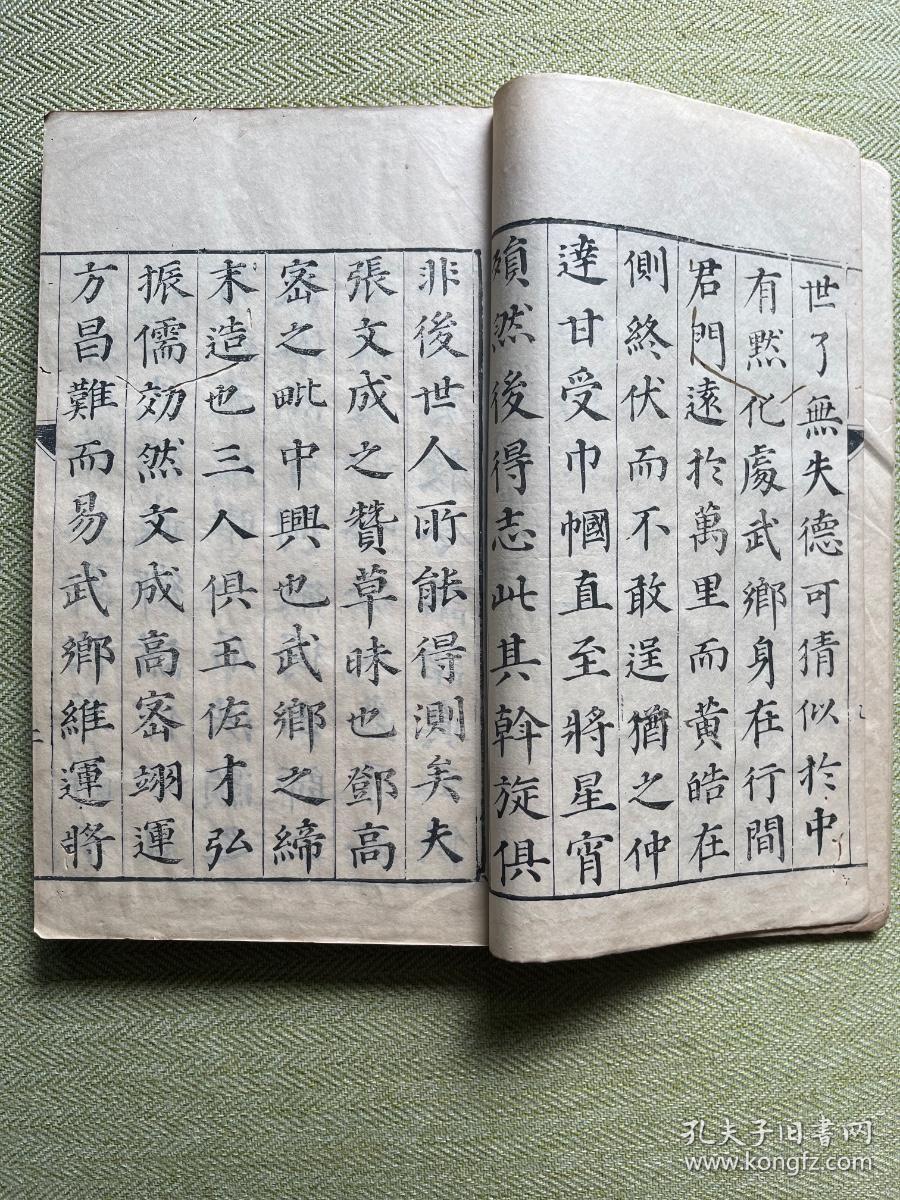 世了無失德可猜似於中
有黙化處武鄉身在行間
君門遠於萬里而黄皓在
側終伏而不敢逞猶之仲
達甘受巾幗直至將星宵
殞然後得志此其斡旋俱
非後世人所能得測矣夫
張文成之贊草昧也鄧高
宻之毗中興也武鄉之締
末造也三人俱王佐才弘
振儒効然文成高宻翊運
方昌難而易武鄉維運將
二
孔夫子旧书网
www.kongfz.com